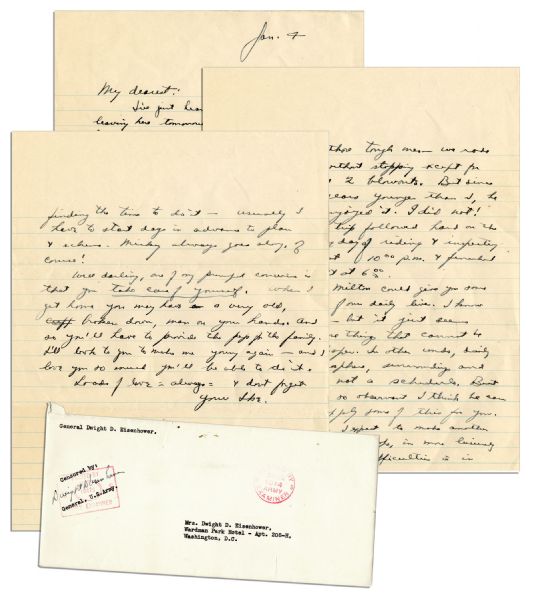 Jan. 4
My dearest:
I've just
leaving here tomorrow
those tough men — we rode
without stopping except for
2 blowouts. But since
years younger than I, he
enjoyed it. I did not!
trip followed hard on the
day of riding &
at 10:00 p.m. & finished
at 6:00
Milton could give you some
of our daily live. I know
but it just seems
no thing that cannot be
In other words, daily
surrounding and
not a schedule. But
so observant I think he can
supply some of this for you.
I expect to make another
in more leisurely
difficulties is in
finding the time to do it — usually I
have to start days in advance to plan
& scheme. Mickey always goes along, of
course!
Well darling, one of my principal concerns is
that you take care of yourself. When I
get home you may have a very old,
broken down, man on your hands. And
so you'll have to provide the pep for the family.
I'll look to you to make me young again — and I
love you so much you'll be able to do it.
Loads of love — always — & don't forget
Your Ike.
General Dwight D. Eisenhower.
Censored by:
Dwight D Eisenhower
General, U.S.Army.
ARMY
EXAMINER
Mrs. Dwight D. Eisenhower,
Wardman Park Hotel - Apt. 206-H,
Washington, D.C.